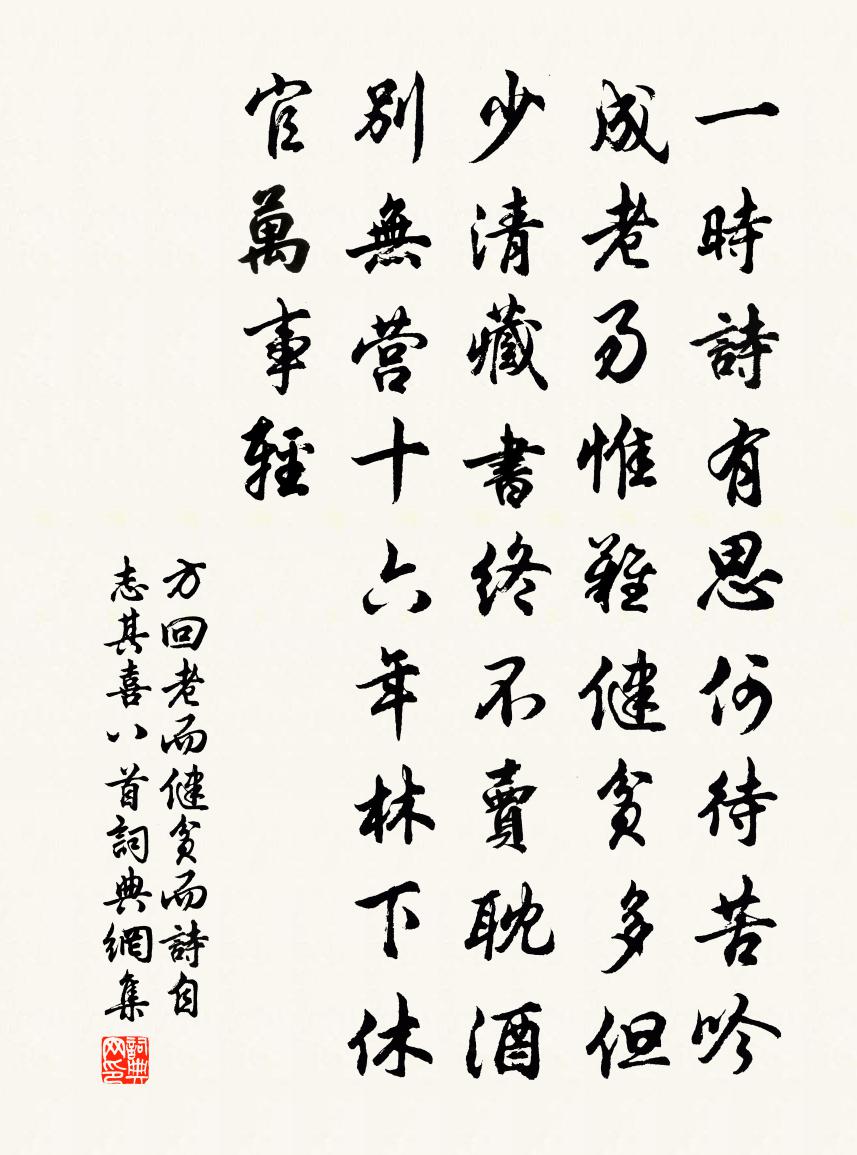 一時詩有思何待苦吟
成老易惟難健貧多但
少清藏書終不賣耽酒
別無营十六年林下休
官萬事輕
方回老而健貧而詩自
志其喜八首詞典網集
詞典网印